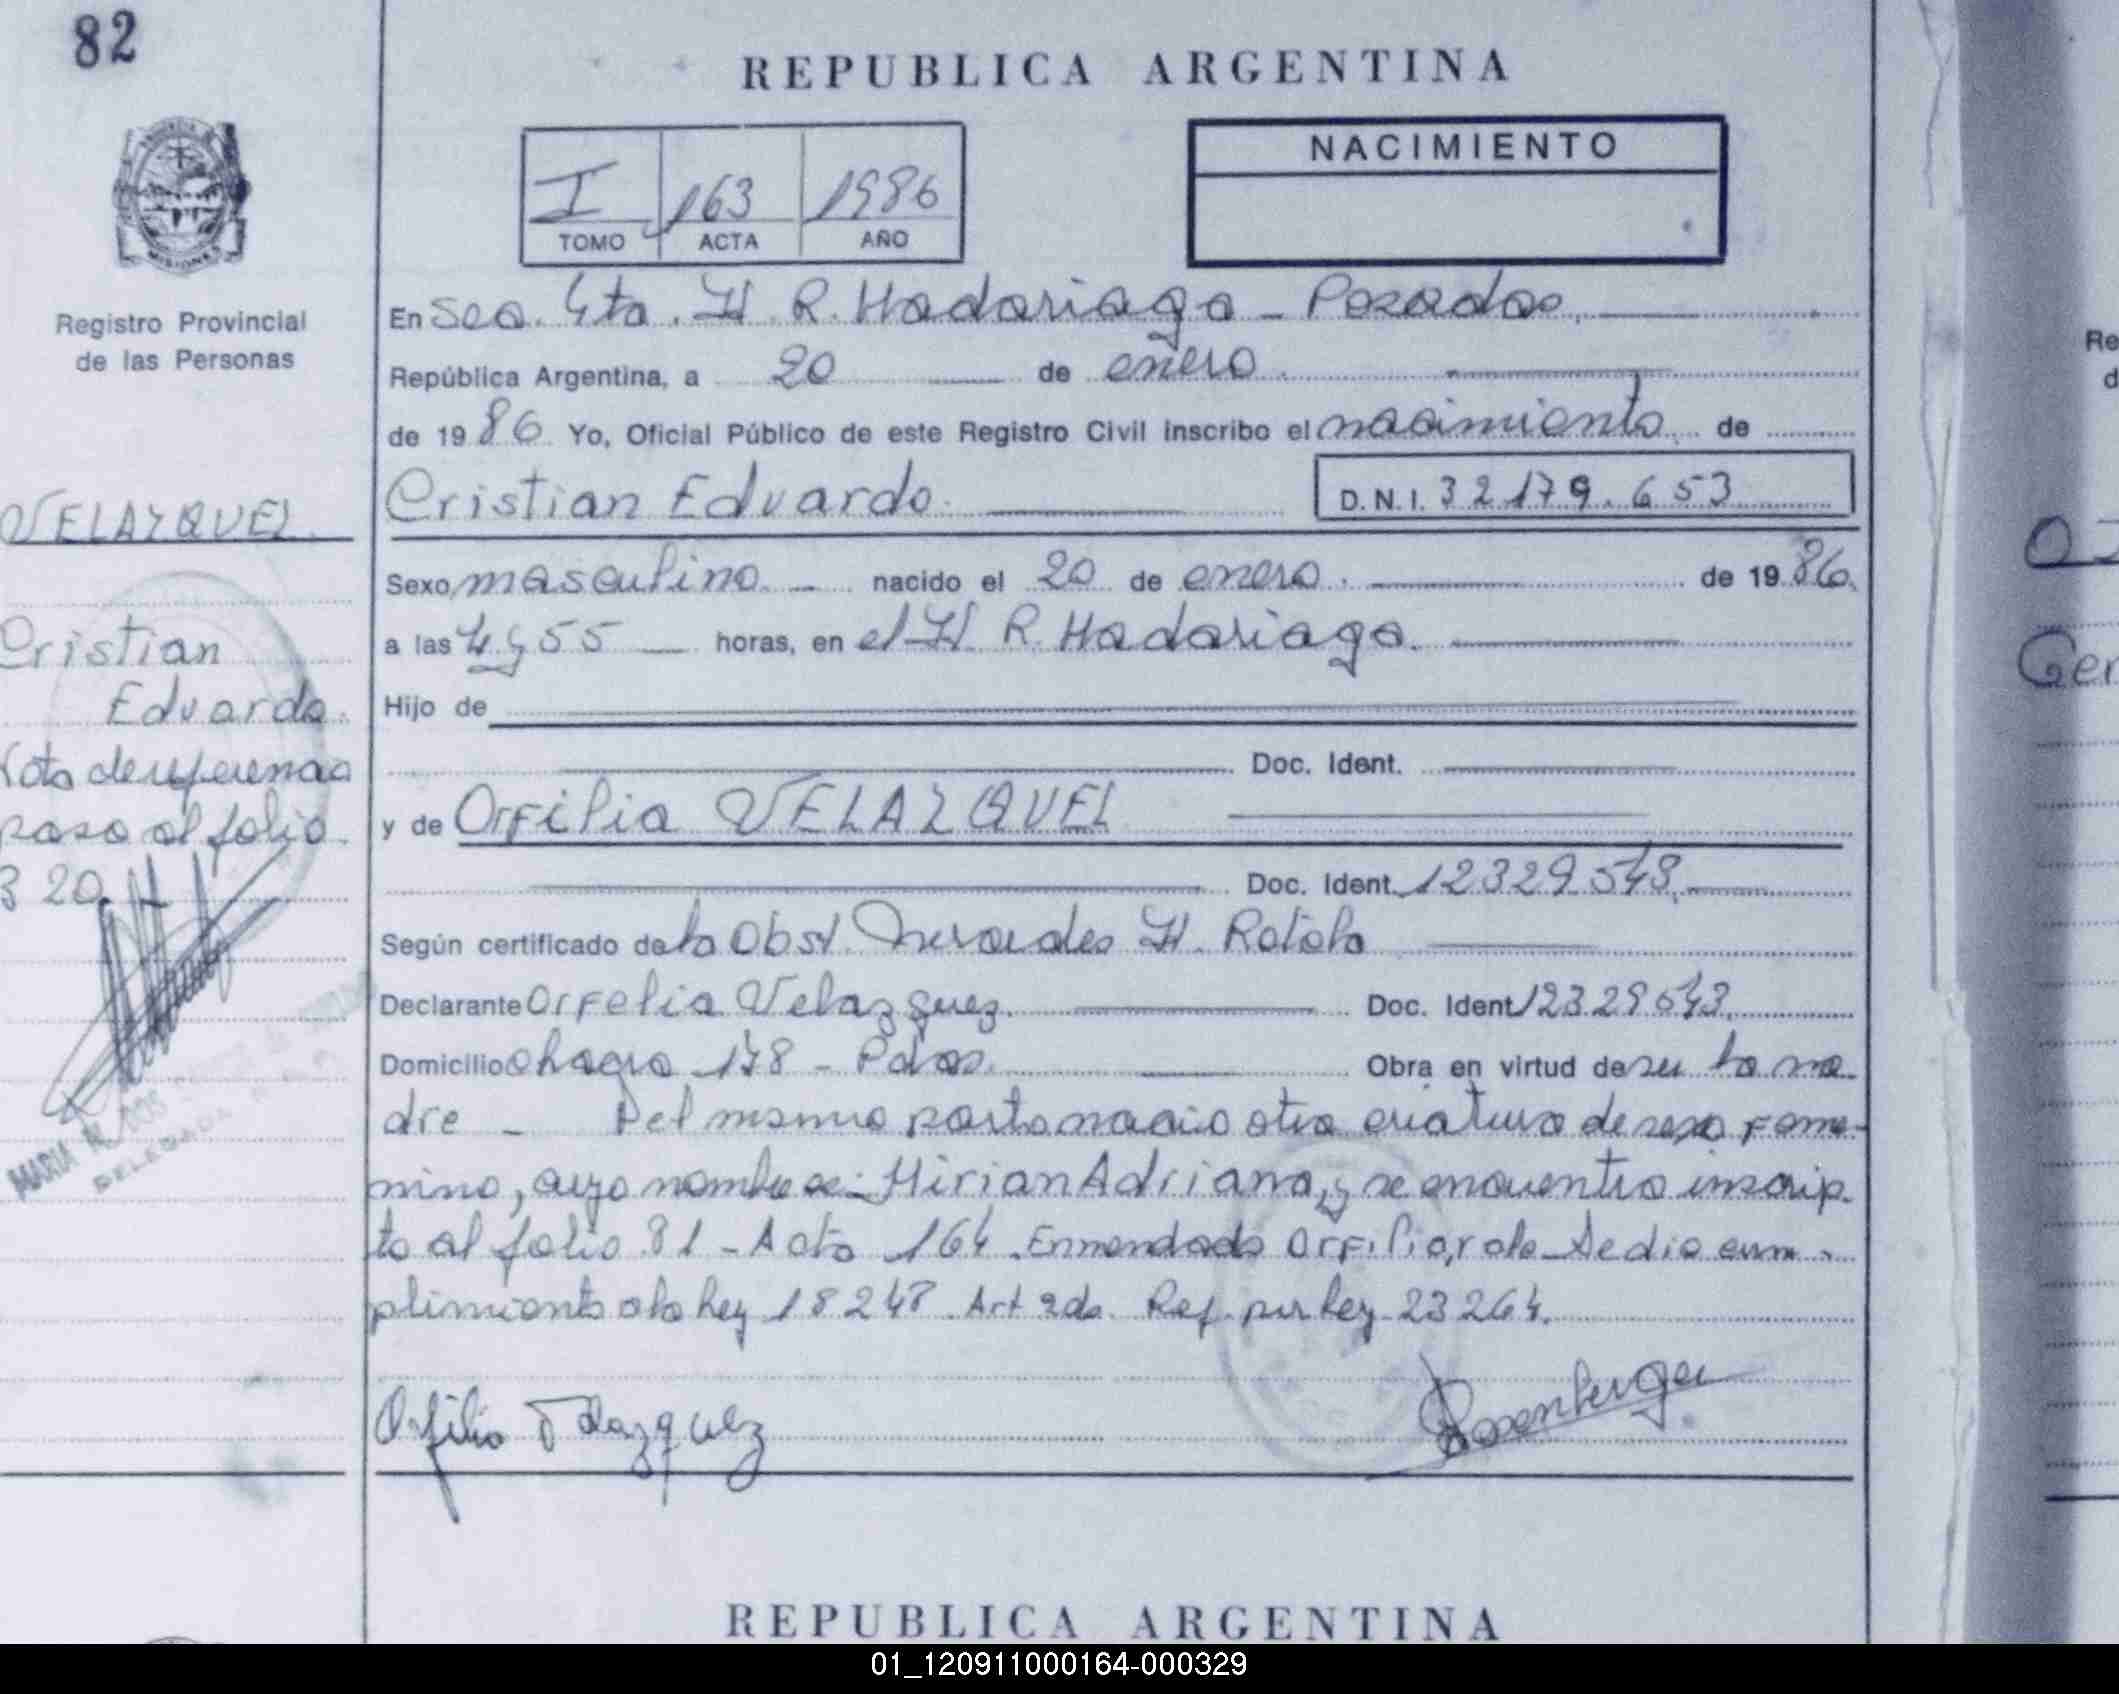 82
REPUBLICA ARGENTINA
NACIMIENTO
I 163 1986
TOMO ACTA AÑO
MISIONES
Registro Provincial
de las Personas
En Sec. 4ta. H. R. Madariaga - Posadas.
República Argentina, a 20 de enero
de 1986 Yo, Oficial Público de este Registro Civil inscribo el nacimiento de
Cristian Eduardo.
D.N.I. 32179.653
VELAZQUEZ.
Sexo masculino nacido el 20 de enero. de 1986.
a las 4 y 55 horas, en el H. R. Madariaga.
Cristian
Eduardo.
Hijo de
Nota de referencia
Doc. Ident.
paso al folio
y de Orfilia VELAZQUEZ
320.
Doc. Ident. 12329543.
Según certificado de la Obst. Mercedes H. Rotola
Declarante Orfelia Velazquez. Doc. Ident 12329543.
Domicilio chacra 178 - Pdas. Obra en virtud de ser la ma
dre - Del mismo parto nació otra criatura de sexo feme-
nino, cuyo nombre es: Mirian Adriana, y se encuentra inscrip-
to al folio 81 - Acta 164. Enmendado Orfilia, vale. Se dio cum-
plimiento a la ley 18248 Art 2do. Ref. por ley 23264.
MARIA R. DOS
DELEGADA
Orfilia Velazquez
Rosenberger
REPUBLICA ARGENTINA
01_120911000164-000329
Re
d
Ger